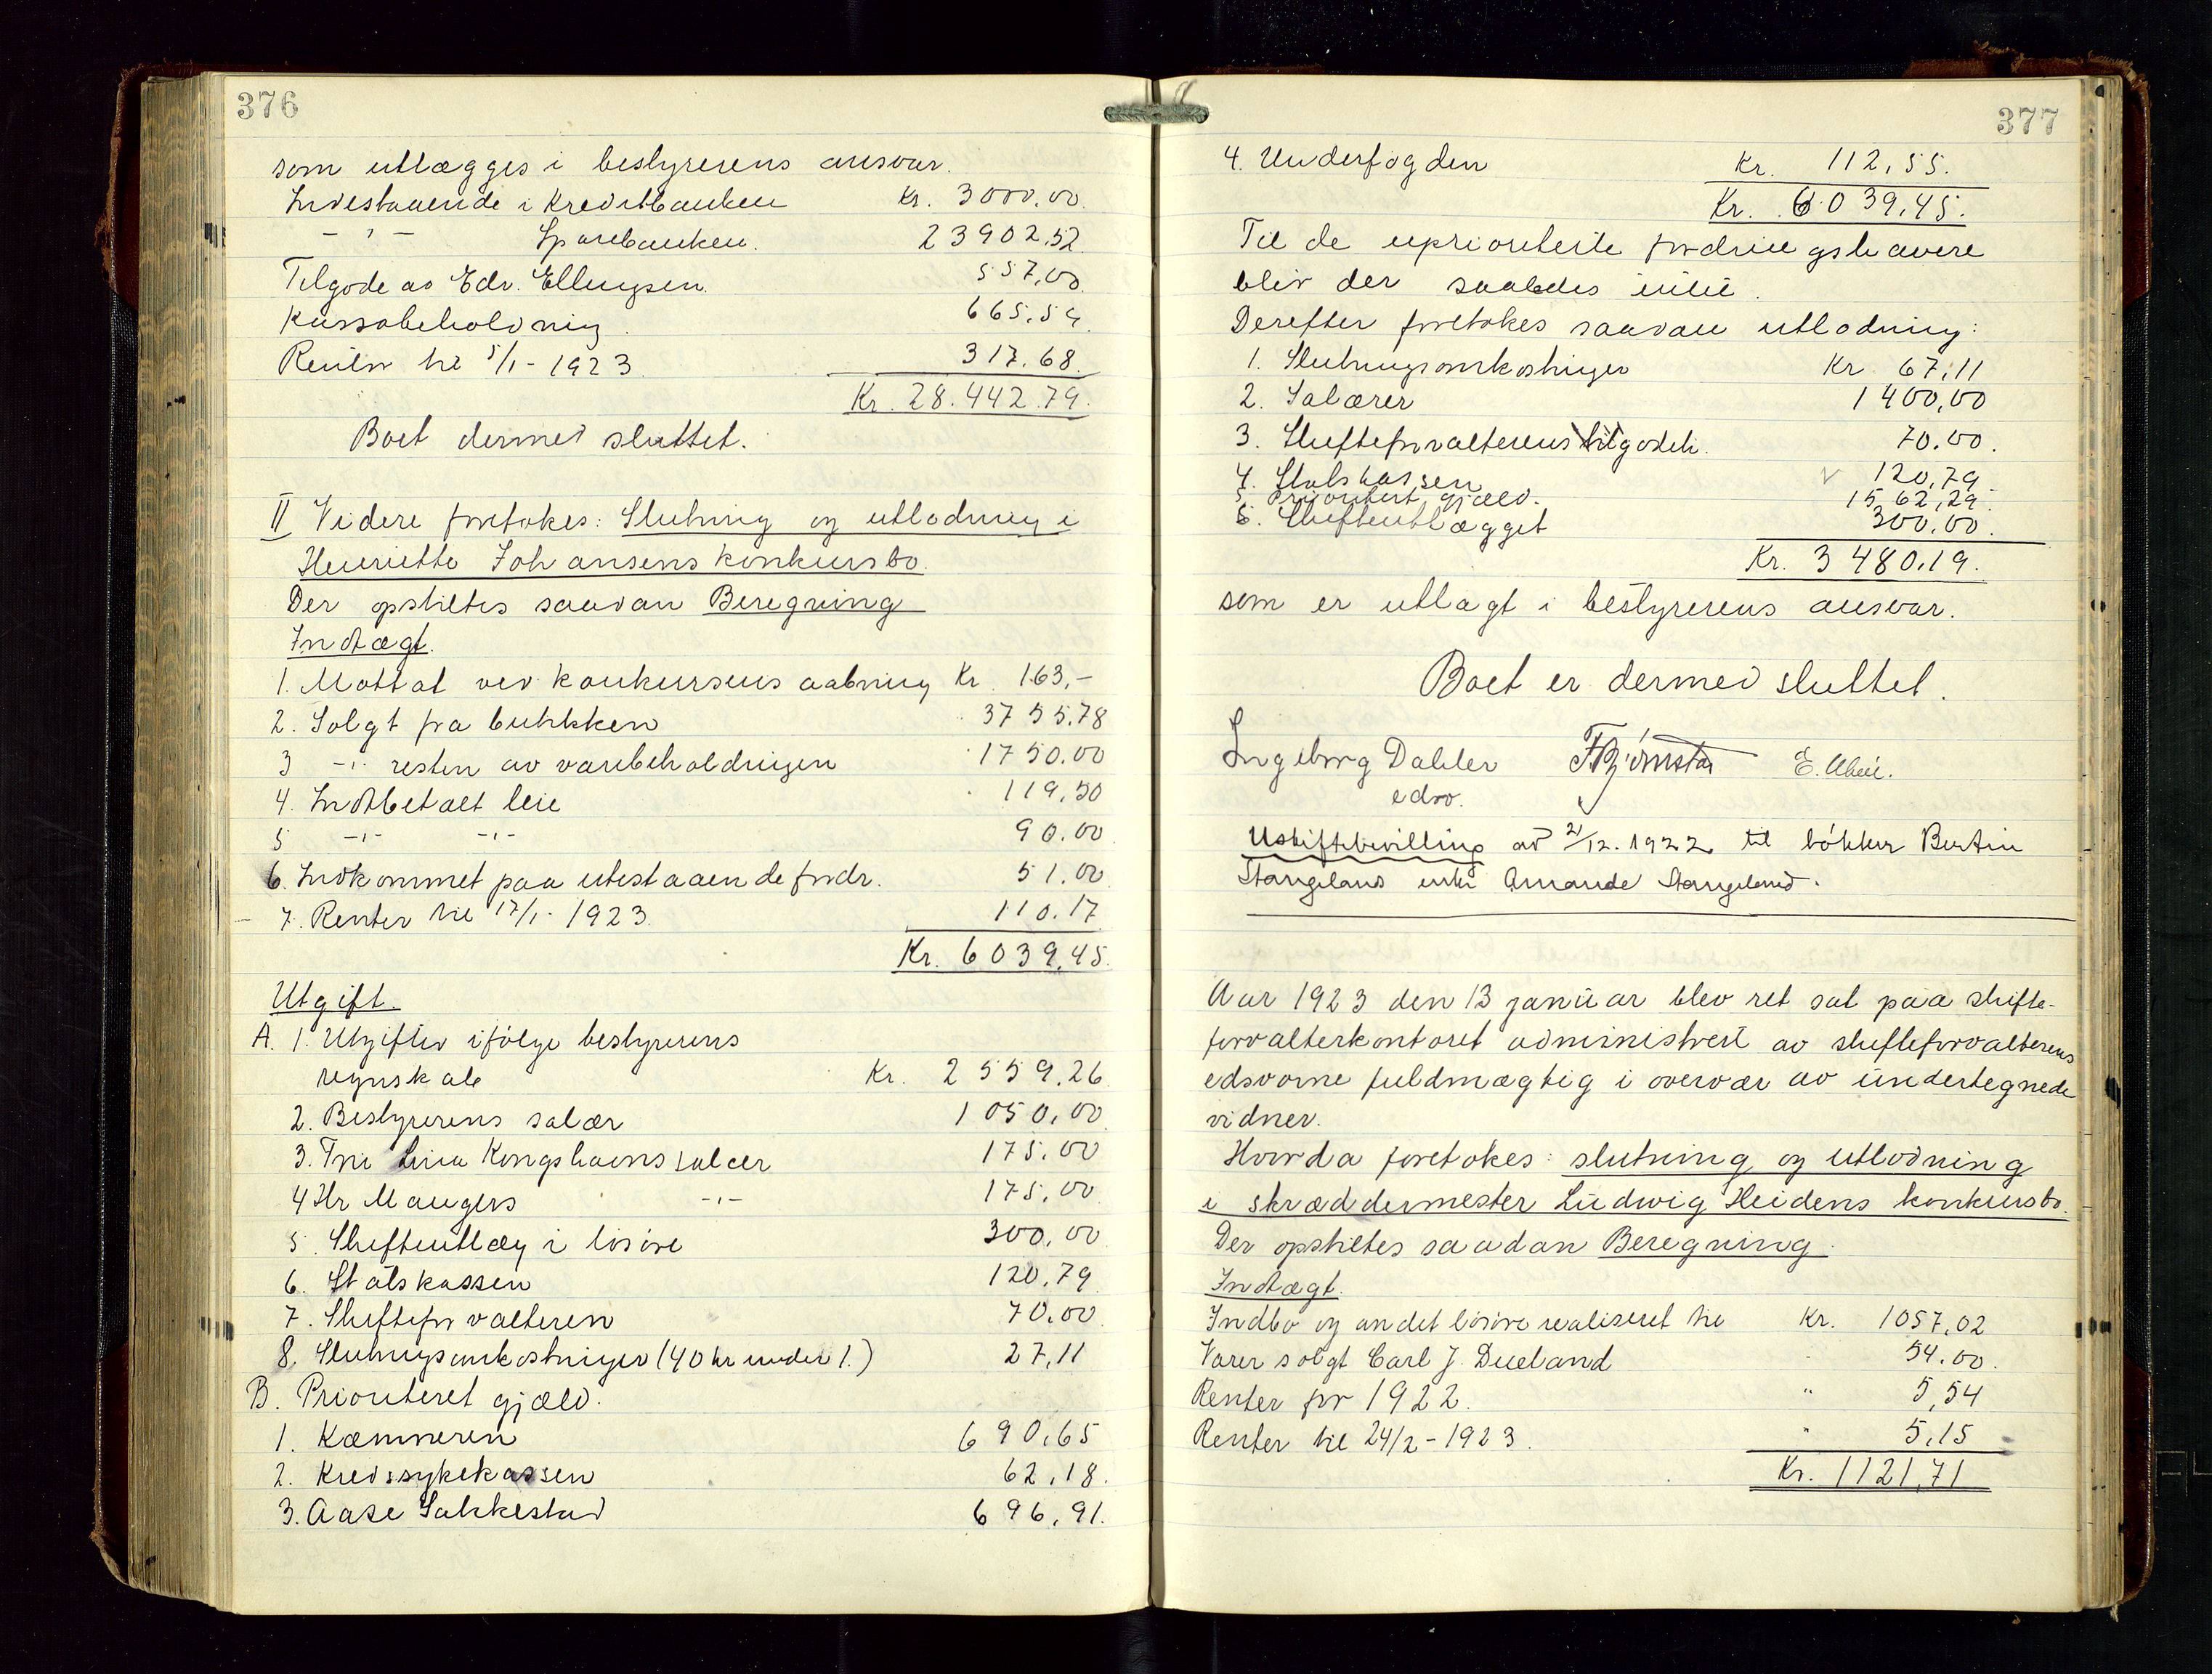 376
som utlægges i bestyrerens ansvar.
Indestaaende i Kreditbanken Kr. 3000.00
- " - Sparebanken. 23902,52
Tilgode av Edv. Ellingsen. 557,00
Kassabeholdning 665,59
Renter til 5/1 - 1923 317.68
Kr. 28.442.79.
Boet dermed sluttet.
II Videre foretokes: Slutning og utlodning i
Henriette Johansens konkursbo.
Der opstiltes saadan Beregning
Indtægt.
1. Mottat ved konkursens aabning Kr 163,-
2. Solgt fra butikken 3755.78
3 -"- resten av varebeholdningen 1750.00
4. Indbetalt leie 119,50
5 -"- -"- 90.00
6. Indkommet paa utestaaende fordr. 51.00
7. Renter til 17/1 - 1923 110.17
Kr. 6039,45
Utgift.
A. 1. Utgifter ifølge bestyrerens
regnskab Kr. 2559,26
2. Bestyrerens salær 1050,00
3. Fru Lina Kongshavns salær 175.00
4 Hr Maugers -"- 175,00
5. Skifteutlæg i løsøre 300,00
6. Statskassen 120,79
7. Skifteforvalteren 70.00
8. Slutningsomkostninger (40 kr under 1.) 27,11
B. Prioriteret gjæld.
1. Kæmneren 690,65
2. Kredssykekassen 62,18.
3. Aase Sakkestad 696,91.
377
4. Underfogden Kr. 112,55.
Kr. 6039,45.
Til de uprioriterte fordringshavere
blir der saaledes intet.
Derefter foretokes saadan utlodning:
1. Slutningsomkostninger Kr 67,11
2. Salærer 1400,00
3. Skifteforvalterens tilgodeh. 70.00.
4. Statskassen 120,79
5. Prioritert gjæld. 1562,29
6. Skifteutlægget 300,00.
Kr. 3480,19.
som er utlagt i bestyrerens ansvar.
Boet er dermed sluttet.
Ingeborg Dahler
edsv.
Uskiftebevilling av 21/12. 1922 til bøkker Bertin
Stangeland enke Amande Stangeland.
Aar 1923 den 13 januar blev ret sat paa skifte-
forvalterkontoret administrert av skifteforvalterens
edsvorne fuldmægtig i overvær av undertegnede
vidner.
Hvorda foretokes: slutning og utlodning
i skræddermester Ludwig Heidens konkursbo.
Der opstiltes saadan Beregning
Indtægt.
Indbo og andet løsøre realiseret til Kr. 1057,02
Varer solgt Carl J. Dueland 54.00.
Renter for 1922. " 5,54
Renter til 24/2 - 1923. " 5,15
Kr. 1121,71